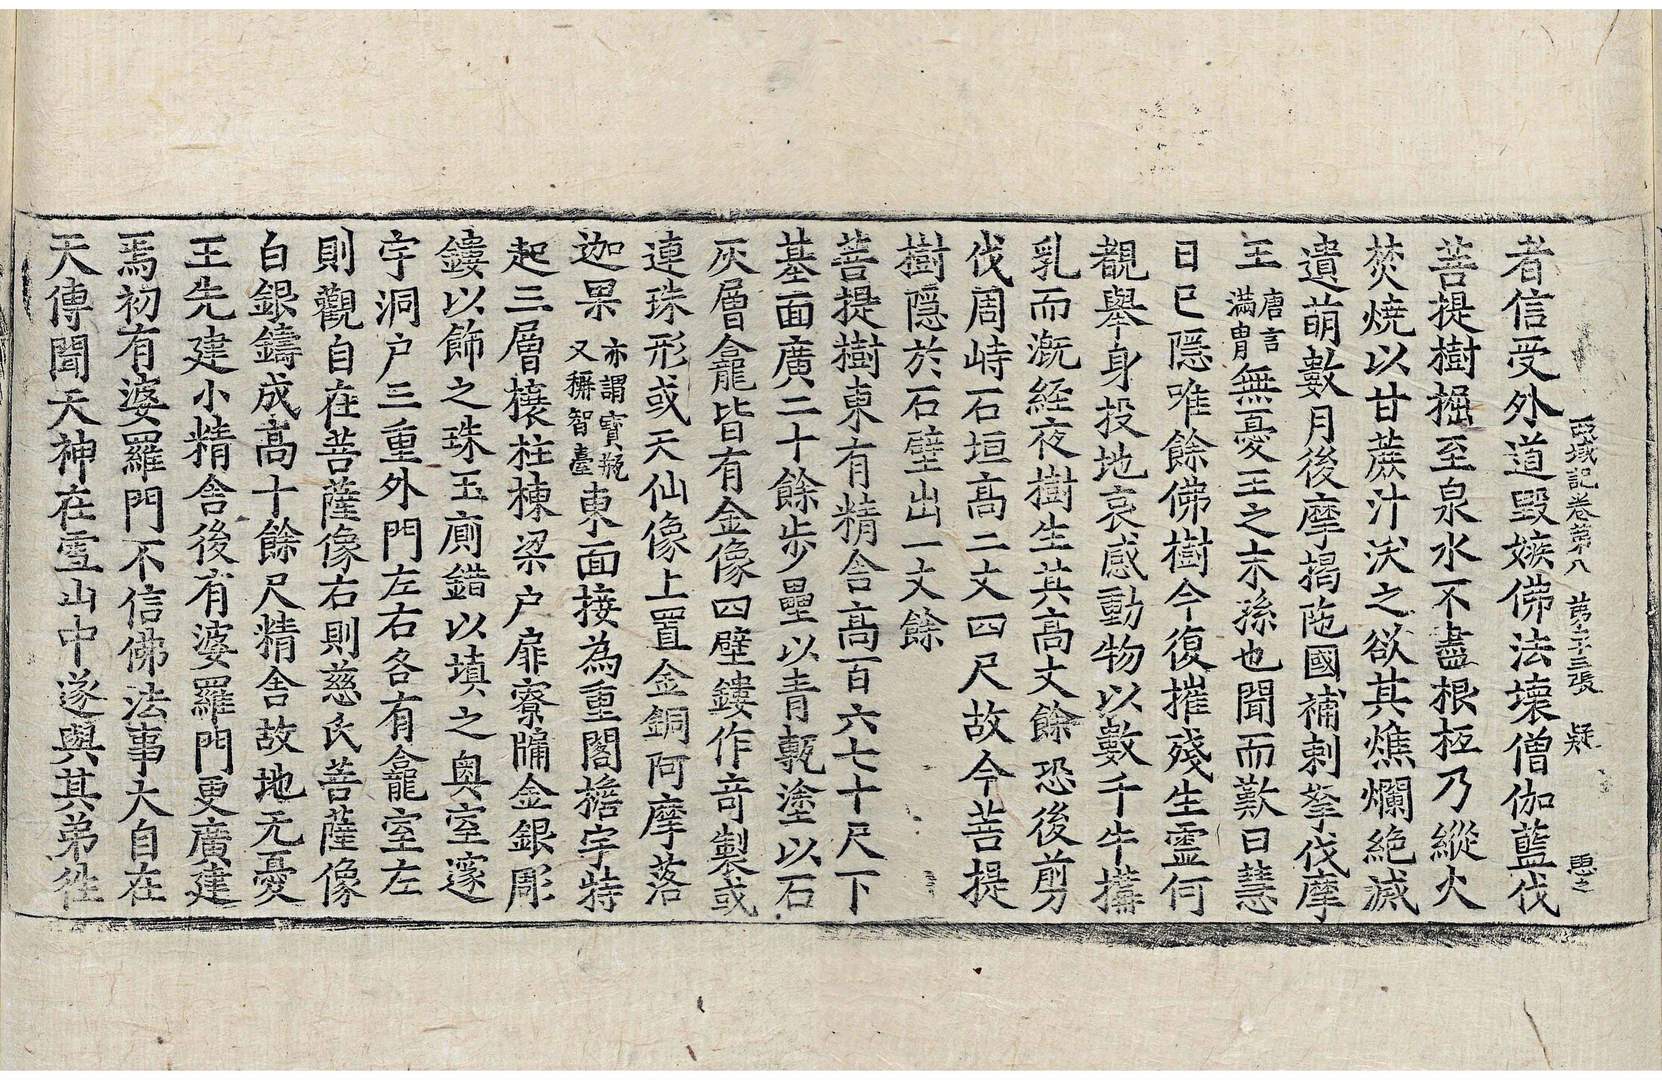 西域記卷第八　第二十三張　疑　思之
者信受外道毀嫉佛法壞僧伽藍伐
菩提樹掘至泉水不盡根柢乃縱火
焚燒以甘蔗汁沃之欲其燋爛絕滅
遺萌數月後摩揭陁國補剌拏伐摩
王唐言滿胄無憂王之末孫也聞而歎曰慧
日已隱唯餘佛樹今復摧殘生靈何
覩舉身投地哀感動物以數千牛搆
乳而溉經夜樹生其高丈餘恐後剪
伐周峙石垣高二丈四尺故今菩提
樹隱於石壁出一丈餘
菩提樹東有精舍高百六七十尺下
基面廣二十餘步壘以青甎塗以石
灰層龕皆有金像四壁鏤作奇製或
連珠形或天仙像上置金銅阿摩落
迦果亦謂寶瓶又稱寶臺東面接為重閣檐宇特
起三層榱柱棟梁户扉寮牖金銀彫
鏤以飾之珠玉廁錯以填之奥室邃
宇洞户三重外門左右各有龕室左
則觀自在菩薩像右則慈氏菩薩像
白銀鑄成高十餘尺精舍故地无憂
王先建小精舍後有婆羅門更廣建
焉初有婆羅門不信佛法事大自在
天傳聞天神在雪山中遂與其弟往